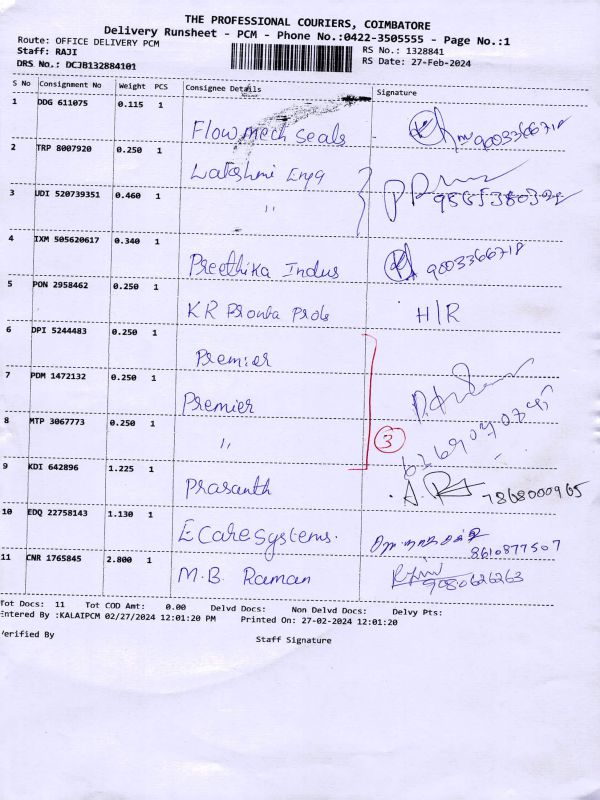 THE PROFESSIONAL COURIERS, COIMBATORE
Delivery Runsheet - PCM - Phone No.:0422-3505555 - Page No.:1
Route: OFFICE DELIVERY PCM
RS No.: 1328841
Staff: RAJI
RS Date: 27-Feb-2024
DRS No.: DCJB132884101
S No Consignment No Weight PCS Consignee Details Signature
1 DDG 611075 0.115 1 Flowmech Seals 9003366718
2 TRP 8007920 0.250 1 Lakshmi Engg
3 UDI 520739351 0.460 1 "
4 IXM 505620617 0.340 1 Preethika Indus 9003366718
5 PON 2958462 0.250 1 KR Pronta Prods H/R
6 DPI 5244483 0.250 1 Premier
7 PDM 1472132 0.250 1 Premier
8 MTP 3067773 0.250 1 " 3
9 KDI 642896 1.225 1 Prasanth 7868000965
10 EDQ 22758143 1.130 1 Ecare systems. 8610877507
11 CNR 1765845 2.800 1 M.B. Raman 9080626263
Tot Docs: 11 Tot COD Amt: 0.00 Delvd Docs: Non Delvd Docs: Delvy Pts:
Entered By :KALAIPCM 02/27/2024 12:01:20 PM Printed On: 27-02-2024 12:01:20
Verified By
Staff Signature